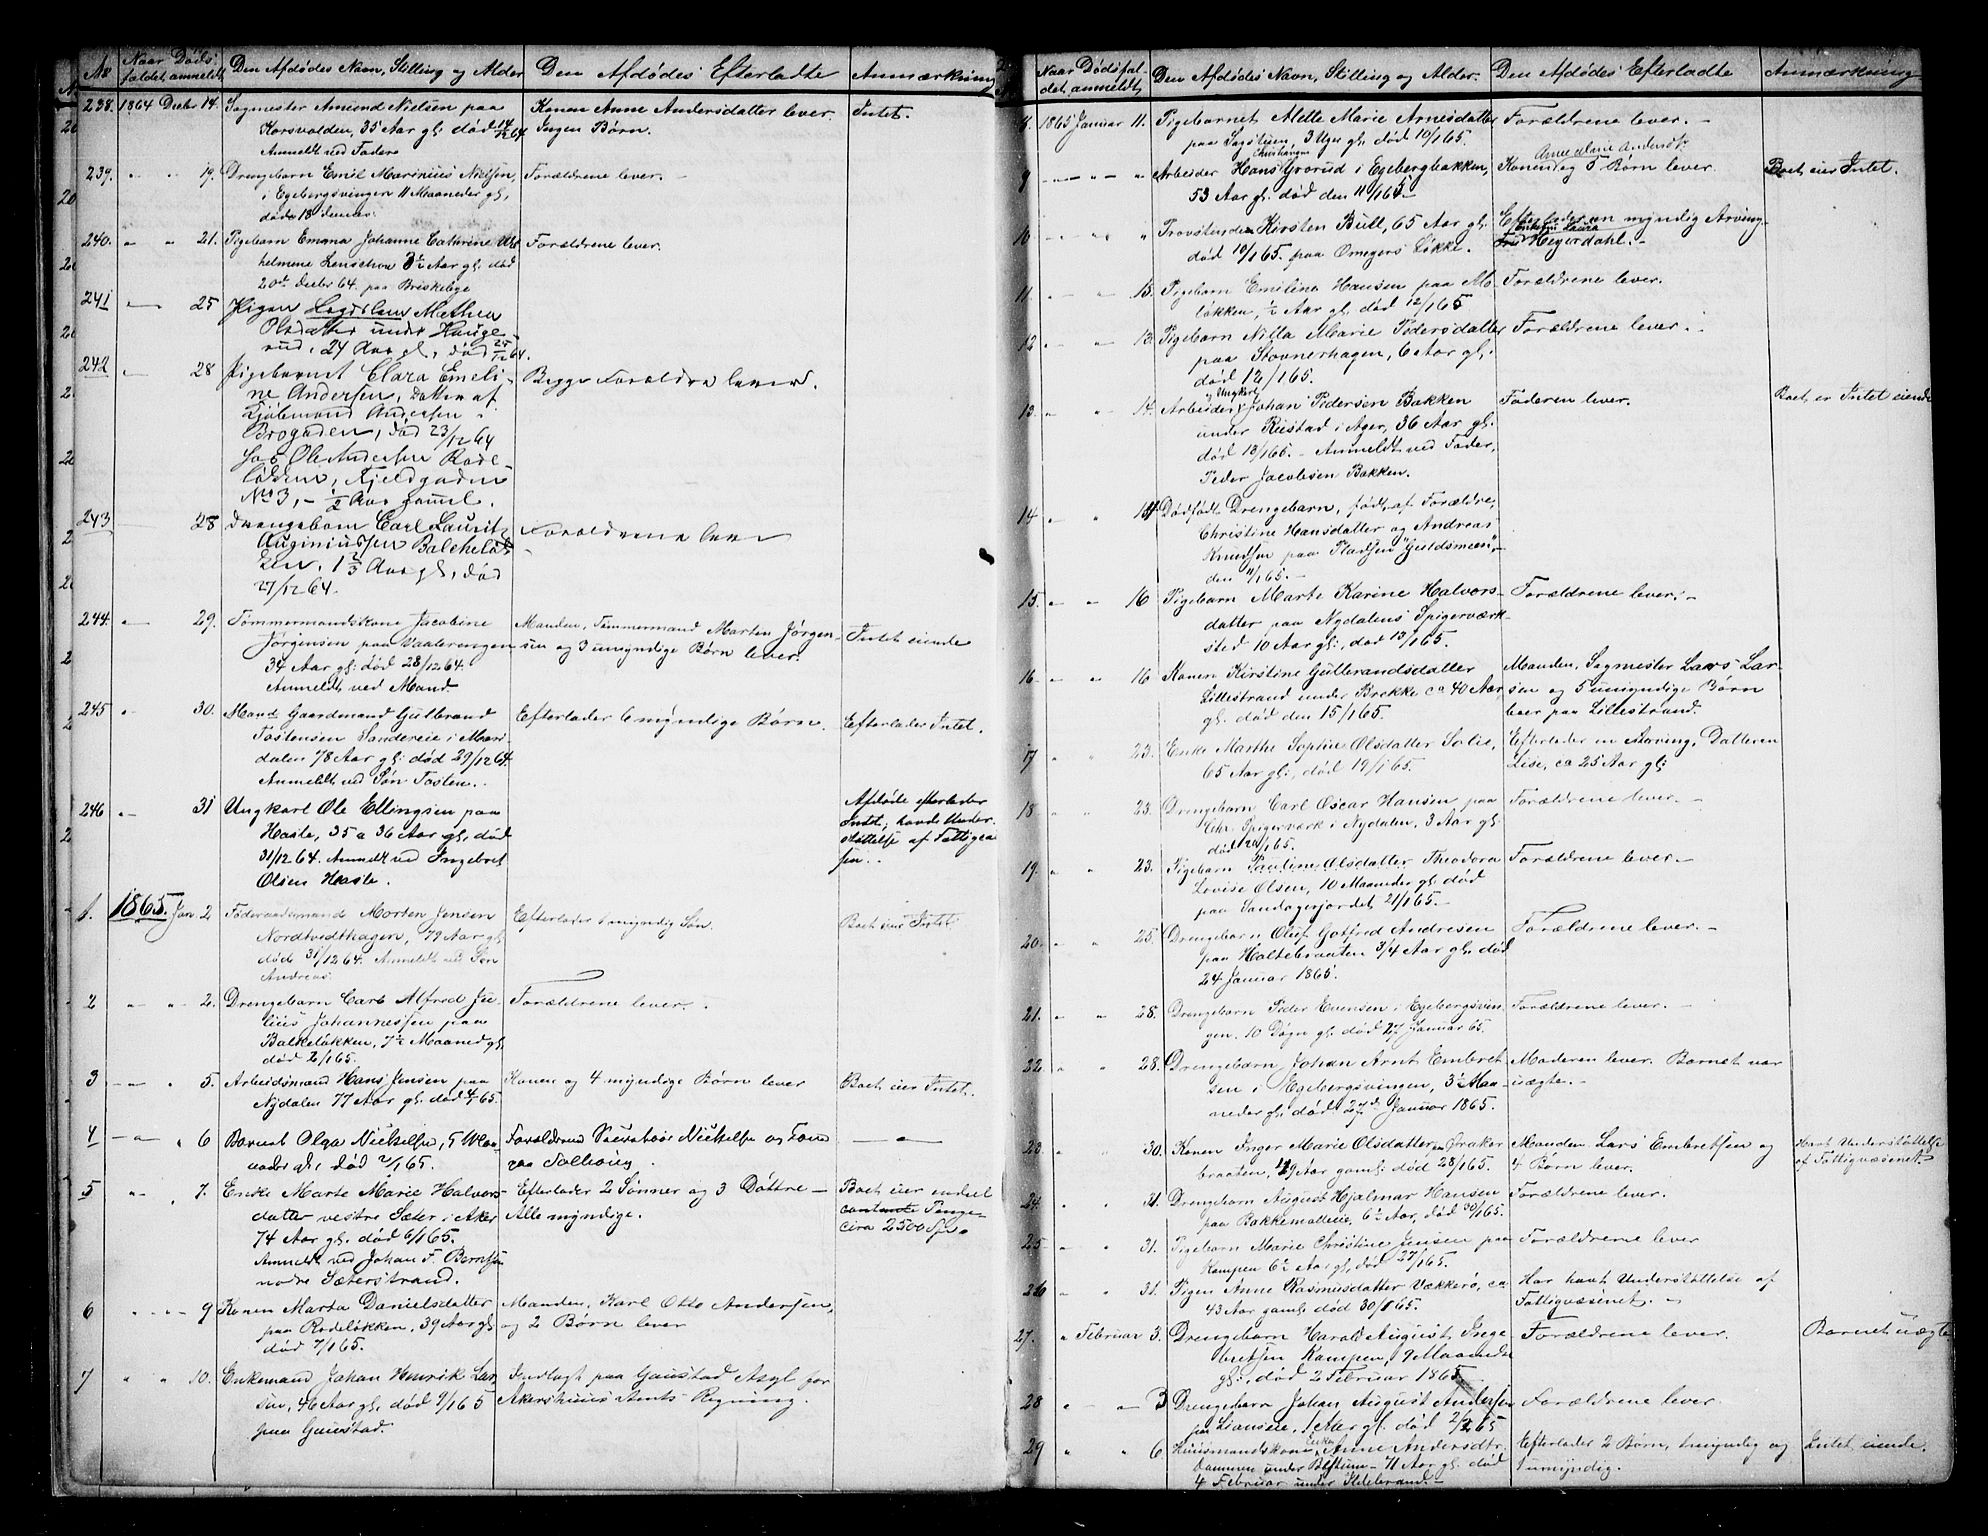 No
Naar Døds-
faldet anmeldt
Den Afdødes Navn, Stilling og Alder
Den Afdødes Efterladte
Anmærkning
238. 1864 Decbr 14. Sagmester Amund Nielsen paa
Korsvolden, 35 Aar gl. død 14/12 64
Anmeldt ved Fader
Konen Anne Andersdatter lever
Ingen Børn.
Intet.
239. " " 19. Drengebarn Emil Marinius Nielsen,
i Egebergsvingen 11 Maaneder gl,
døde 18 dennes.
Forældrene lever. -
240. " " 21. Pigebarn Emma Johanne Cathrine Vil-
helmene Lenschou 3½ Aar gl. død
20de Decbr 64. paa Briskebye
Forældrene lever.
241 — 25 Pigen
Mathea
Olsdatter under Hauge-
rud, 24 Aar gl, død 25/12 64.
242 " 28 Pigebarnet Clara Emeli-
ne Andersen, Datter af
Kjøbmand Andersen i
Brogaden, død 23/12 64
hos Ole Andersen Rode-
løkken, Fjeldgaden
No 3, - ½ Aar gamel.
Begge Forældre lever.
243 28 Drengebarn Carl Lauritz
Auginiussen Balkeløk-
ken, 1 2/3 Aar gl, død
27/12 64.
Forældrene lever
244. " 29. Tømmermandskone Jacobine
Jørgensen paa Vaalerengen
34 Aar gl. død 28/12 64.
Anmeldt ved Mand
Manden, Tømmermand Morten Jørgen-
sen og 3 umyndige Børn lever.
Intet eiende
245 " 30. Mand Gaardmand Gulbrand
Tostensen Sandereie i Mari-
dalen 78 Aar gl. død 29/12 64.
Anmeldt ved Søn Tosten.
Efterlader 6 myndige Børn.
Efterlader Intet.
246 " 31 Ungkarl Ole Ellingsen paa
Hasle, 35 a 36 Aar gl. død
31/12 64. Anmeldt ved Ingebret
Olsen Hasle.
Afdøde efterlader
Intet; havde Under-
støttelse af Fattigca-
sen.
1. 1865. Jan. 2 Føderaadsmand Morten Jensen
Nordtvedthagen, 79 Aar gl
død 31/12 64. Anmeldt ved Søn
Andreas.
Efterlader 1 myndig Søn.
Boet eier Intet
2 " " 2. Drengebarn Carl Alfred Ju-
lius Johannessen paa
Balkeløkken, 7½ Maaned gl,
død 2/1 65.
Forældrene lever.
3 — " 5. Arbeidsmand Hans Jensen paa
Nydalen 77 Aar gl. død 4/1 65.
Konen og 4 myndige Børn lever
Boet eier Intet.
4 — " 6 Barnet Olga Nickelsen, 5 Maa-
neder gl, død 2/1 65.
Forældrene
Nickelsen og Kone
paa
— " —
5 " " 7. Enke Marte Marie Halvors-
datter vestre Sæter i Aker
74 Aar gl. død 6/1 65.
Anmeldt ved Johan F. Berntsen
nodre Sæterstrand.
Efterlader 2 Sønner og 3 Døttre -
Alle myndige.
Boet eier endeel
contante Penge-
circa 2500 Spd.
6 " " 9 Konen Marta Danielsdatter
paa Rodeløkken, 39 Aar gl
død 7/1 65.
Manden, Karl Otto Andersen,
og 2 Børn lever
7 " " 10. Enkemand Johan Henrik Lar-
sen, 46 Aar gl, død 9/1 65
paa Gaustad.
Indlagt paa Gaustad Asyl for
Akershuus Amts Regning.
Naar Dødsfal-
det anmeldt
Den Afdødes Navn, Stilling og Alder.
Den Afdødes Efterladte
Anmærkning
8. 1865 Januar 11. Pigebarnet Mette Marie Arnesdatter
paa Sagstuen 3 Uger gl. død 10/1 65.
Forældrene lever. -
9 — " — " Arbeider Hans Christiansen Grorud i Egebergbakken,
53 Aar gl. død den 11/1 65.
Konen Anne Marie Andersdt. og 5 Børn lever.
Boet eier Intet.
10 " " " Provstinde Kirsten Bull, 65 Aar gl.
død 10/1 65. paa Omegers Løkke.
Efterlader en myndig Arving-
Enkefru Laura
Fru Hegerdahl. -
11. " " 13. Pigebarn Emiline Hansen paa Mo-
løkken, ½ Aar gl. død 12/1 65
Forældrene lever.
12 " " 13. Pigebarn Nilla Marie Pedersdatter
paa Stovnerhagen, 6 Aar gl.
død 12/1 65.
Forældrene lever.
13. " " 14. Arbeider og Ungkarl Johan Pedersen Bakken
under Rustad i Ager, 36 Aar gl.
død 13/1 65. - Anmeldt ved Fader,
Peder Jacobsen Bakken.
Faderen lever.
Boet er Intet eiende
14 " " 14 Dødfødt Drengebarn, født af Forældre,
Christine Hansdatter og Andreas
Knudsen paa Pladsen
den 11/1 65. -
15. " " 16 Pigebarn Marte Karine Halvors-
datter paa Nydalens Spigerværk-
sted 10 Aar gl: død 13/1 65.
Forældrene lever. -
16 " " 16 Konen Kirstine Gulbrandsdatter
Lillestrand under Brekke ca 40 Aar
gl. død den 15/1 65.
Manden, Sagmester Lars Lar-
sen og 5 umyndige Børn
lever paa Lillestrand.
17 " " 23. Enke Marthe Sophie Olsdatter Solie,
65 Aar gl:, død 19/1 65.
Efterlader en Arving, Datteren
Lise, ca 25 Aar gl:
18 " " 23. Drengebarn Carl Oscar Hansen paa
Chr. Spigerværk i Nydalen, 3 Aar gl:
død 20/1 65.
Forældrene lever. -
19. " " 23. Pigebarn Pauline Olsdatter Theodora
Lovise Olsen, 10 Maaneder gl. død
paa Sandagerjordet 21/1 65. -
Forældrene lever. -
20. " " 25. Drengebarn Oluf Gotfred Andresen
paa Holtebraaten 3/4 Aar gl. død
24 Januar 1865.
Forældrene lever. -
21. " " 28. Drengebarn Peder Evensen i Egebergsvin-
gen. 10 Døgn gl. død 27 Januar 65.
Forældrene lever. -
22. " " 28. Drengebarn Johan Arnt Embret-
sen i Egebergsvingen, 3½ Maa-
neder gl. død 27de Januar 1865.
Moderen lever. Barnet var
uægte. -
23. " " 30. Konen Inger Marie Olsdatter
braaten, 49 Aar gaml. død 28/1 65.
Manden Lars Embretsen og
4 Børn lever.
Havt Understøttelse
af Fattigvæsenet.
24. " " 31. Drengebarn August Hjalmar Hansen
paa Bakkemølleeie, 6½ Aar, død 30/1 65.
Forældrene lever.
25 " " 31. Pigebarn Marie Christine Jensen paa
Kampen 6½ Aar gl, død 27/1 65.
Forældrene lever
26 " " 31. Pigen Anne Rasmusdatter Vækkerø, ca
43 Aar gaml. død 30/1 65.
Har havt Understøttelse af
Fattigvæsenet. -
27. " Februar 3. Drengebarn Harald August Inge-
bretsen Kampen, 9 Maaneder
gl:, død 2 Februar 1865
Forældrene lever.
Barnet uægte
28 " " 3 Drengebarn Johan August Andersen
paa Lianseie, 1 Aar gl: død 2/2 65
Forældrene lever.
29 " " 6 Huusmandskone Enken Anne Andersdtr.
Dammen under
71 Aar gl. død
4 Februar under Hildebrand. -
Efterlader 2 Børn, 1 myndig og
1 umyndig.
Intet eiende.